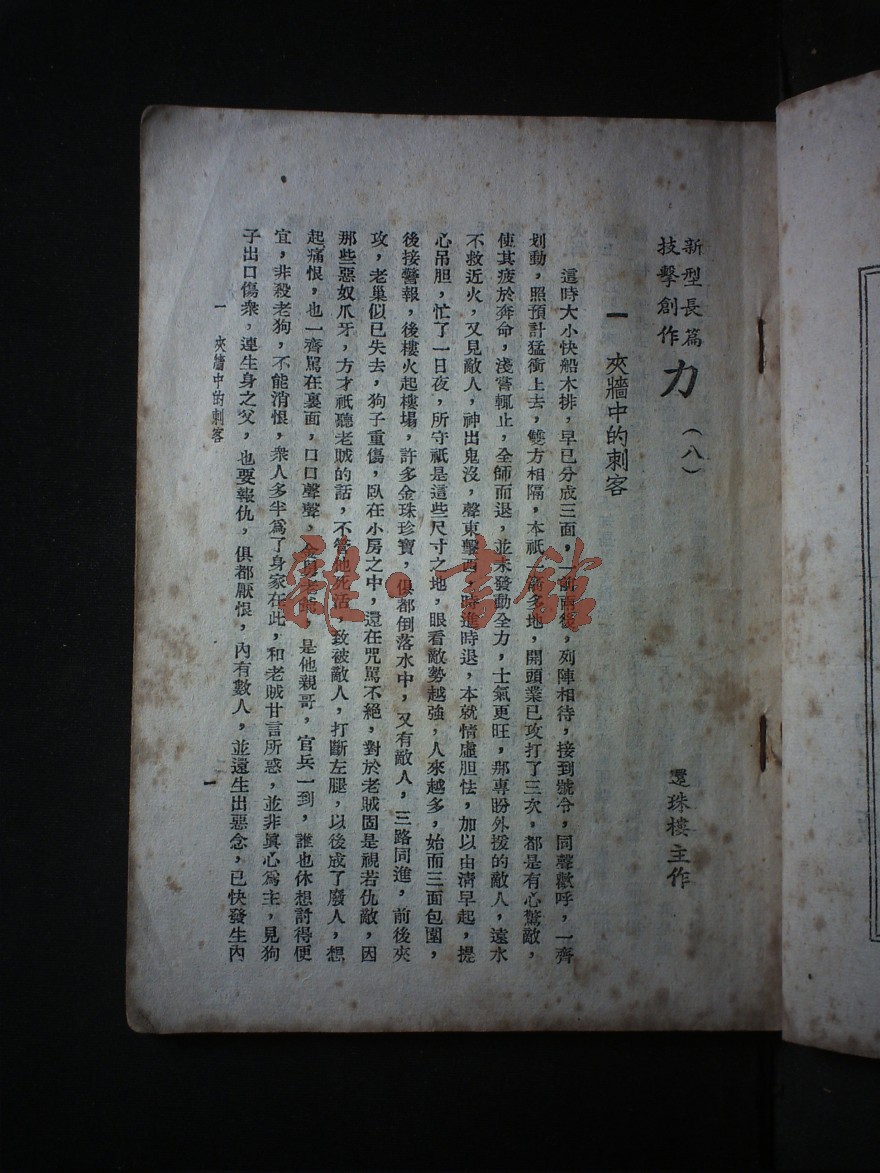 新型長篇
技擊創作
力（八）
還珠樓主作
一　夾牆中的刺客
這時大小快船木排，早已分成三面，一前兩後，列陣相待，接到號令，同聲歡呼，一齊
划動，照預計猛衝上去，雙方相隔，本祇一箭多地，開頭業已攻打了三次，都是有心驚敵，
使其疲於奔命，淺嘗輒止，全師而退，並未發動全力，士氣更旺，那專盼外援的敵人，遠水
不救近火，又見敵人，神出鬼沒，聲東擊西，時進時退，本就情虛胆怯，加以由清早起，提
心吊胆，忙了一日夜，所守祇是這些尺寸之地，眼看敵勢越強，人來越多，始而三面包圍，
後接警報，後樓火起樓塌，許多金珠珍寶，俱都倒落水中，又有敵人，三路同進，前後夾
攻，老巢似已失去，狗子重傷，臥在小房之中，還在咒罵不絕，對於老賊固是視若仇敵，因
那些惡奴爪牙，方才祇聽老賊的話，不管他死活，致被敵人，打斷左腿，以後成了廢人，想
起痛恨，也一齊罵在裏面，口口聲聲，是他親哥，官兵一到，誰也休想討得便
宜，非殺老狗，不能消恨，衆人多半爲了身家在此，和老賊甘言所惑，並非眞心爲主，見狗
子出口傷衆，連生身之父，也要報仇，俱都厭恨，內有數人，並還生出惡念，已快發生內
一　夾牆中的刺客
一
雜·書館